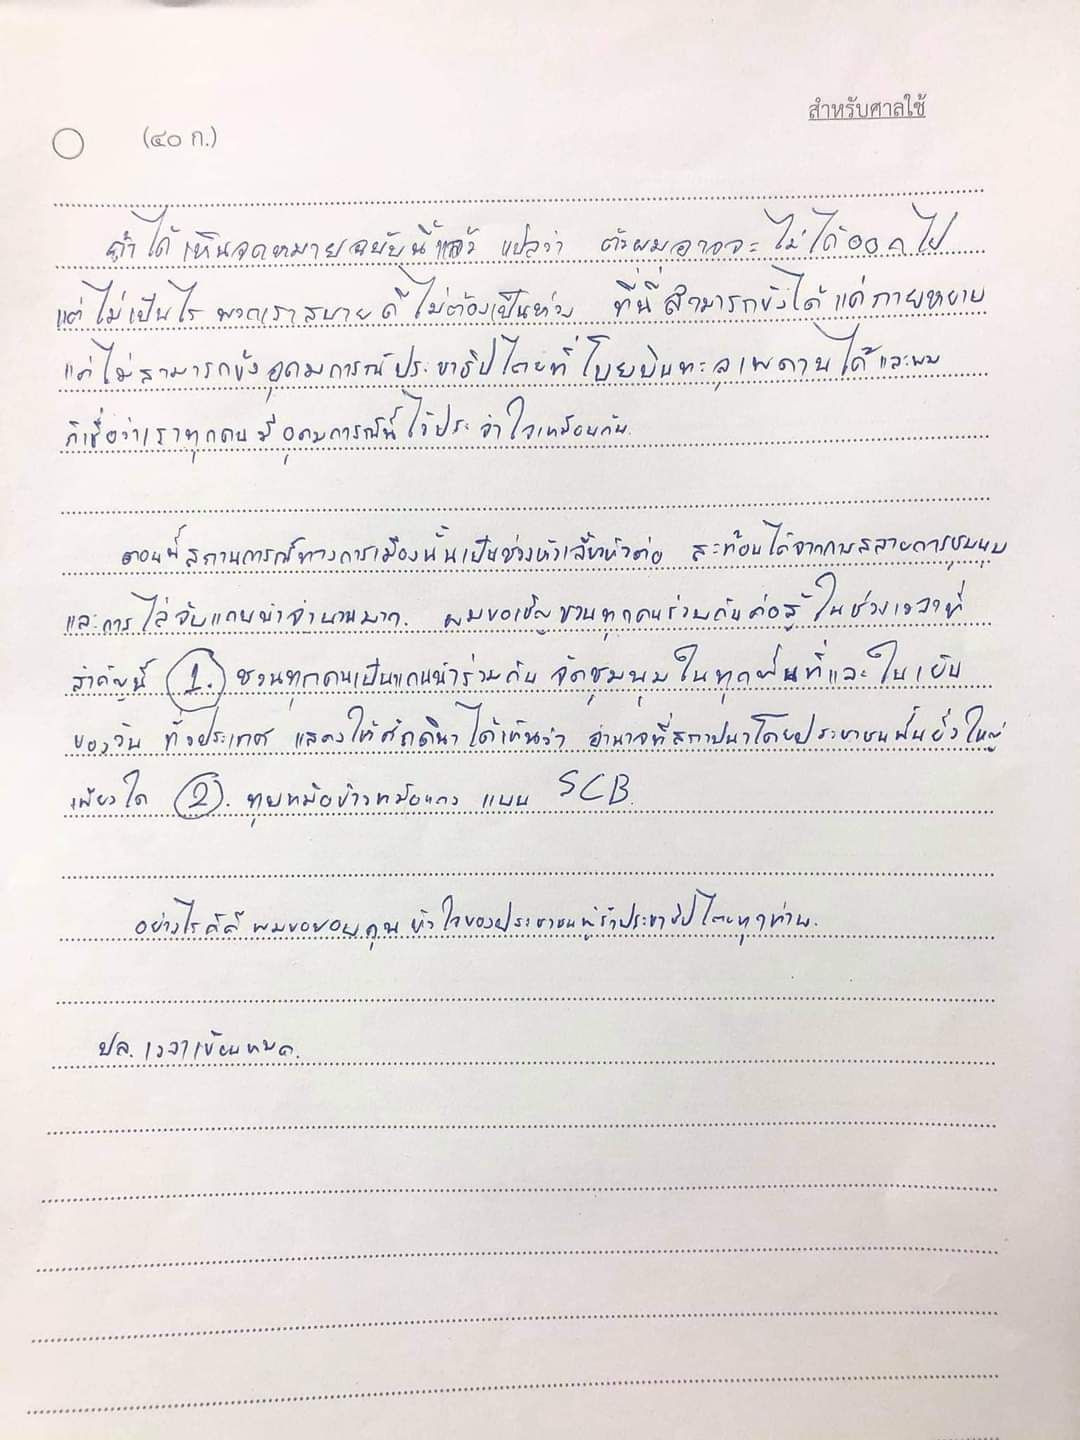 สำหรับศาลใช้
(๔๐ ก.)
ถ้าได้เห็นจดหมายฉบับนี้แล้ว แปลว่า ตัวผมอาจจะไม่ได้ออกไป
แต่ไม่เป็นไร พวกเราสบายดี ไม่ต้องเป็นห่วง ที่นี่สามารถขังได้แค่กายหยาบ
แต่ไม่สามารถขังอุดมการณ์ประชาธิปไตยที่โบยบินทะลุเพดานได้ และผม
ก็เชื่อว่าเราทุกคนมีอุดมการณ์นี้ไว้ประจำใจเหมือนกัน
ตอนนี้สถานการณ์ทางการเมืองนั้นเป็นช่วงหัวเลี้ยวหัวต่อ สะท้อนได้จากการสลายการชุมนุม
และการไล่จับแกนนำจำนวนมาก. ผมขอเชิญชวนทุกคนร่วมกันต่อสู้ในช่วงเวลาที่
สำคัญนี้ 1. ชวนทุกคนเป็นแกนนำร่วมกัน จัดชุมนุมในทุกพื้นที่และในเย็น
ของวัน ทั่วประเทศ แสดงให้ศักดินาได้เห็นว่า อำนาจที่สถาปนาโดยประชาชนนั้นยิ่งใหญ่
เพียงใด 2. ทุบหม้อข้าวหม้อแกง แบน SCB.
อย่างไรก็ดี ผมขอขอบคุณหัวใจของประชาชนผู้รักประชาธิปไตยทุกท่าน.
ปล. เวลาเขียนหมด.